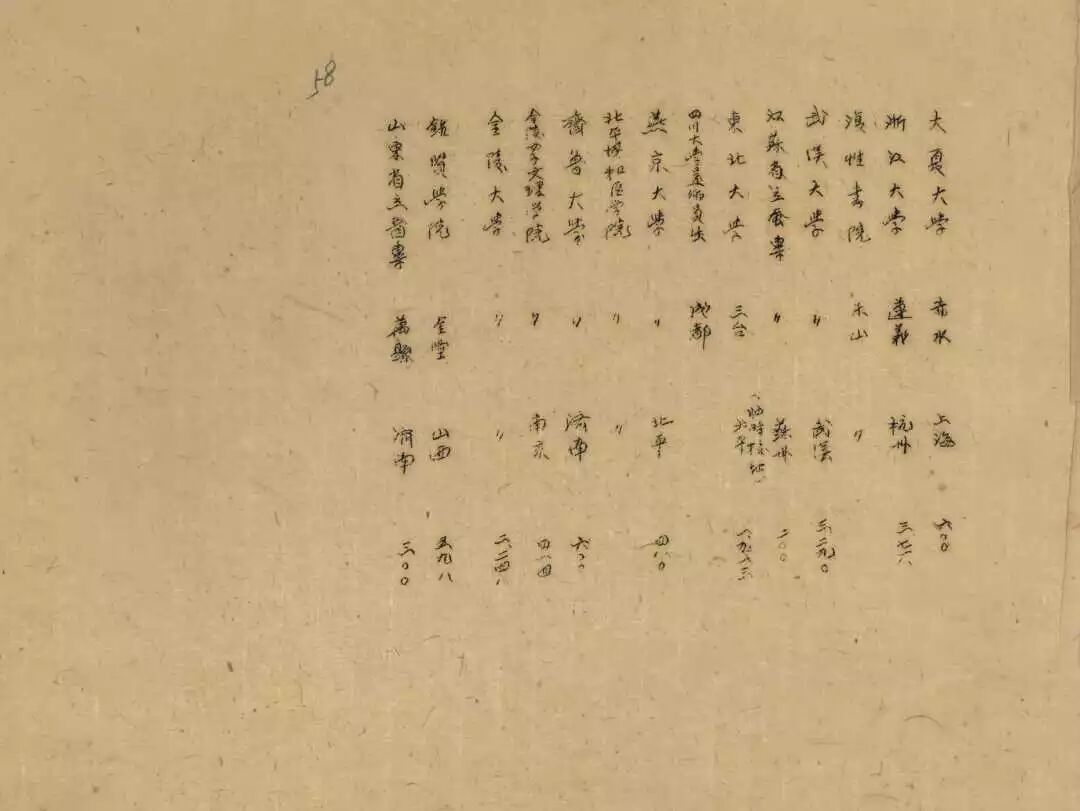 58
大夏大學 赤水 上海 六〇〇
浙江大學 遵義 杭州 三七六
復性書院 樂山 〃
武漢大學 〃 武漢
江蘇省立蚕專 〃 蘇州 二〇〇
東北大學 三台 (临時校地)北平
四川大學 成都
燕京大學 〃 北平 四八〇
北平協和医学院 〃 〃
齊魯大學 〃 濟南 六〇〇
金陵女子文理学院 〃 南京
金陵大學 〃 〃
銘賢學院 金堂 山西 五九八
山東省立醫專 萬縣 濟南 三〇〇